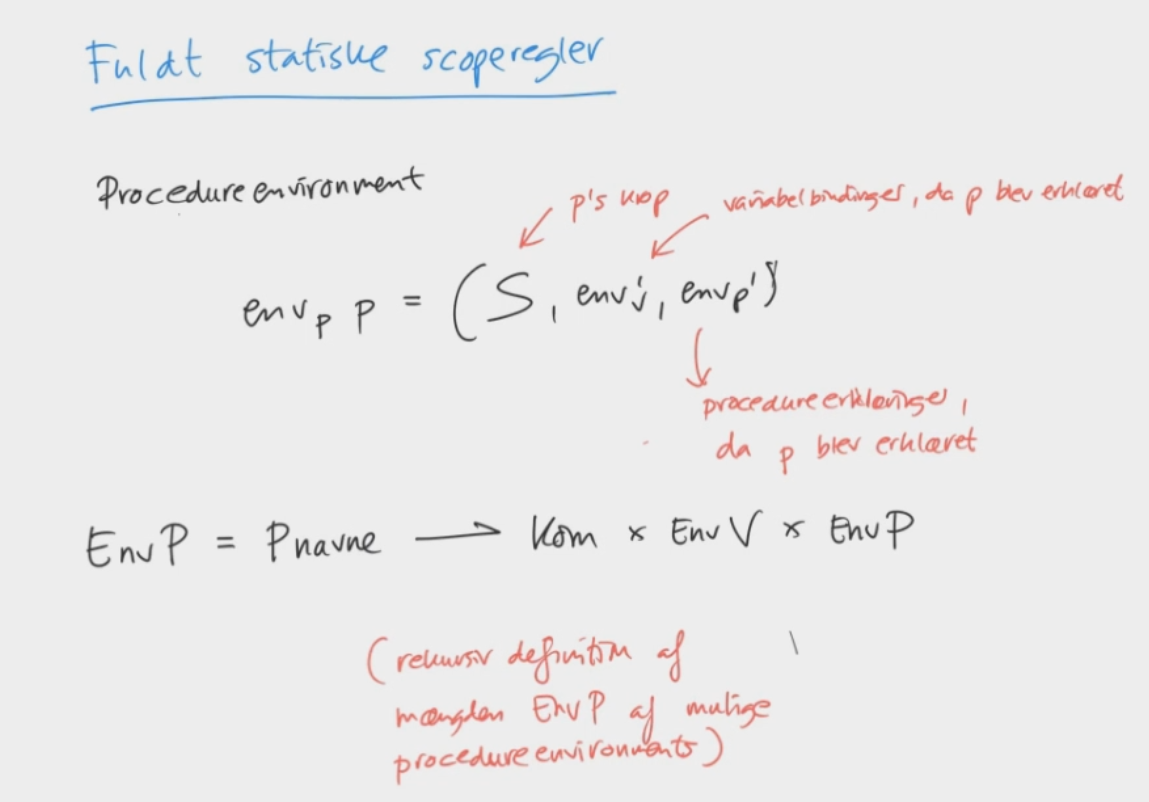 Fuldt statiske scoperegler
Procedureenvironment
p's krop
variabelbindinger, da p blev erklæret
env_p p = (S, env_v', env_p')
procedureerklæringer,
da p blev erklæret
EnvP = Pnavne → Kom × EnvV × EnvP
(rekursiv definition af
mængden EnvP af mulige
procedureenvironments)